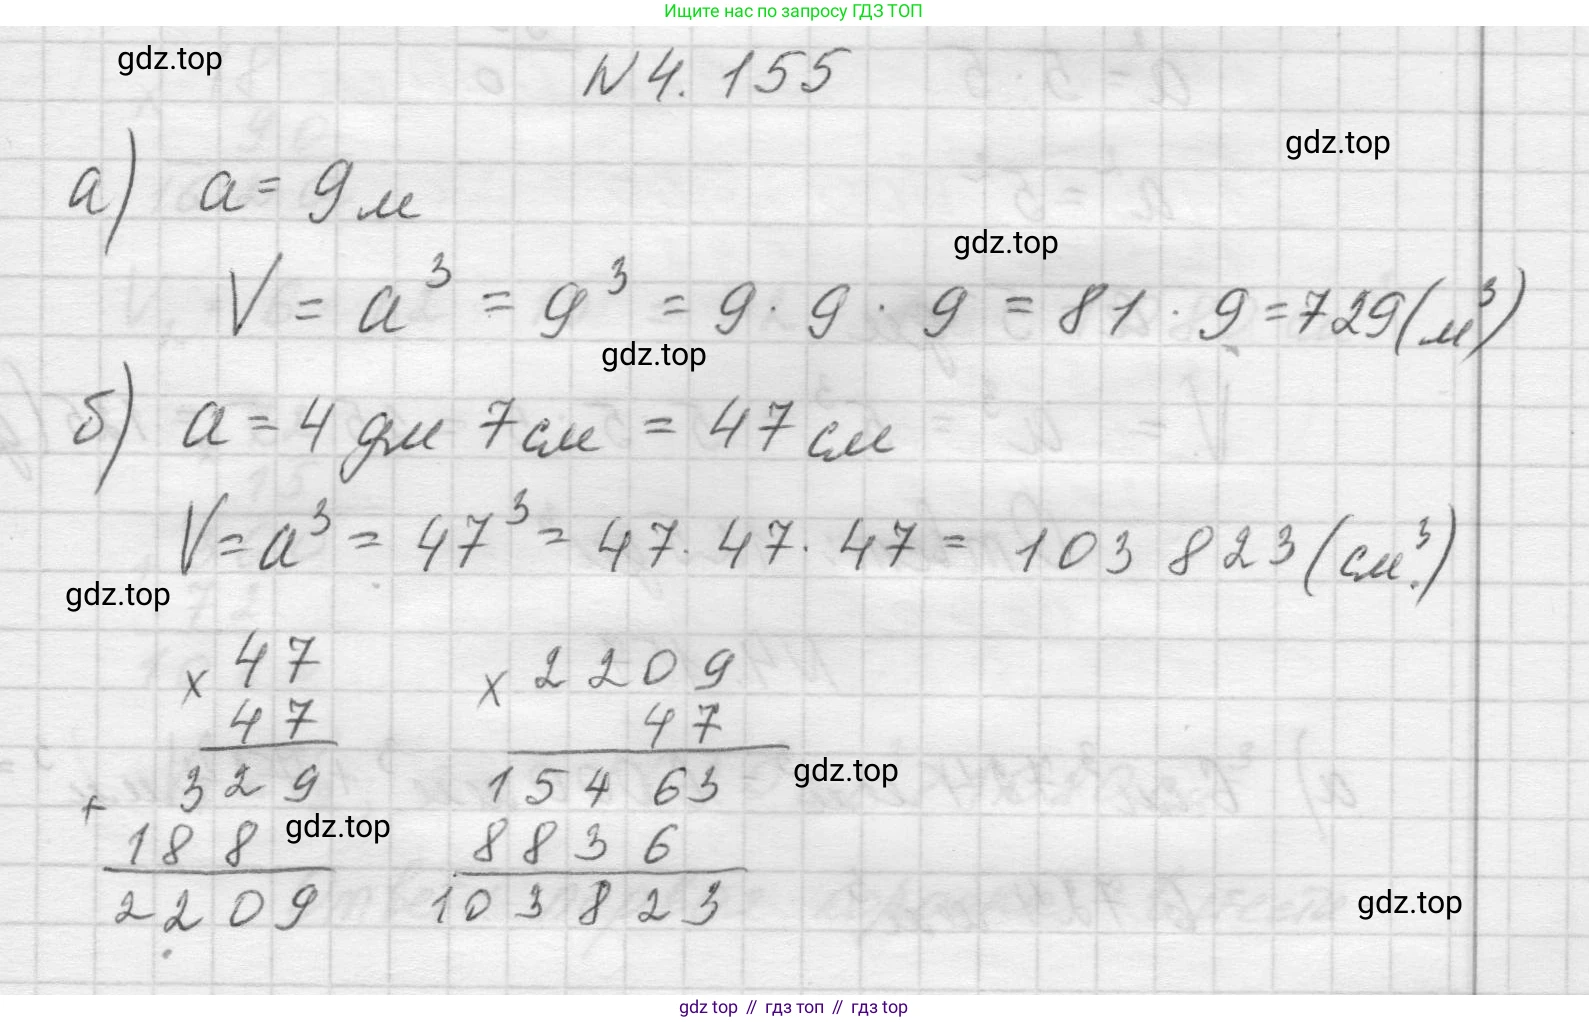 Ищите нас по запросу ГДЗ ТОП
gdz.top
N 4. 155
gdz.top
а) a = 9 м
gdz.top
V = a³ = 9³ = 9 · 9 · 9 = 81 · 9 = 729 (м³)
gdz.top
б) a = 4 дм 7 см = 47 см
V = a³ = 47³ = 47 · 47 · 47 = 103 823 (см³)
gdz.top
× 47
47
329
+
188
2209
× 2209
47
15463
8836
103823
gdz.top
gdz.top
gdz.top
gdz top // гдз топ // гдз top